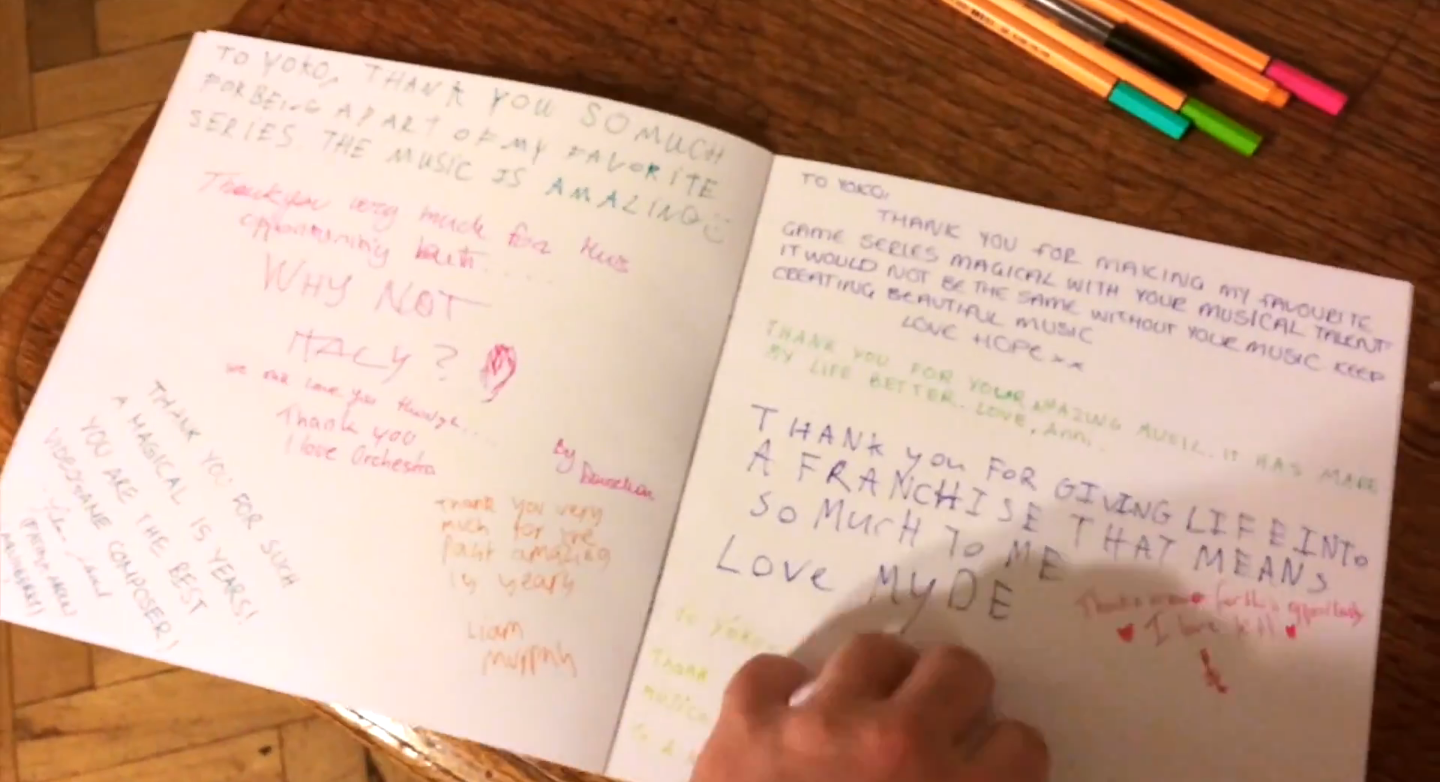 TO YOKO, THANK YOU SO MUCH
FOR BEING A PART OF MY FAVORITE
SERIES THE MUSIC IS AMAZING
Thank you very much for this
opportunity but....
WHY NOT
ITALY?
we all love you though....
Thank you
I love Orchestra
By
THANK YOU FOR SUCH
A MAGICAL 15 YEARS!
YOU ARE THE BEST
VIDEOGAME COMPOSER!
Thank you very
much for the
past amazing
15 years
Liam
Murphy
TO YOKO,
THANK YOU FOR MAKING MY FAVOURITE
GAME SERIES MAGICAL WITH YOUR MUSICAL TALENT
IT WOULD NOT BE THE SAME WITHOUT YOUR MUSIC KEEP
CREATING BEAUTIFUL MUSIC
LOVE HOPE xx
THANK YOU FOR YOUR AMAZING MUSIC. IT HAS MADE
MY LIFE BETTER. LOVE, Ann.
THANK you FOR GIVING LIFE INTO
A FRANCHISE THAT MEANS
SO MUCH TO ME
LOVE MYDE
for this opportunity
I love
To Yoko
Thank
music